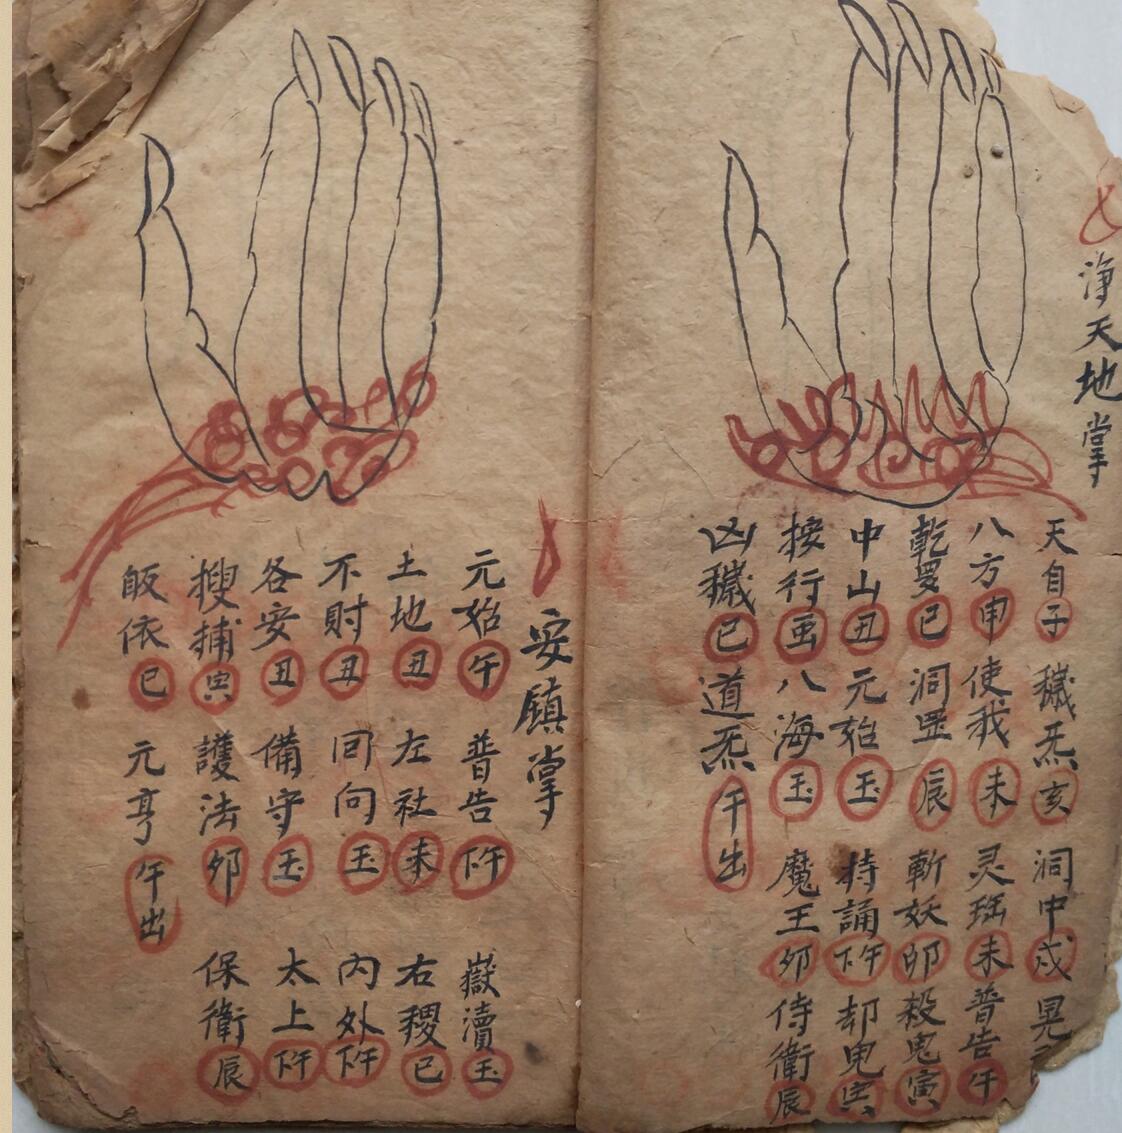 淨天地掌
天自子 穢炁亥 洞中戍 晃
八方申 使我未 灵珤未 普告午
乾旻巳 洞罡辰 斬妖卯 殺鬼寅
中山丑 元始玉 持誦下午 却鬼寅
按行 八海玉 魔王卯 侍衛辰
凶穢巳 道炁 午出
安鎮掌
元始午 普告下午 嶽瀆玉
土地丑 左社未 右稷巳
不時丑 回向玉 內外下午
各安丑 備守玉 太上下午
搜捕寅 護法卯 保衛辰
皈依巳 元亨 午出